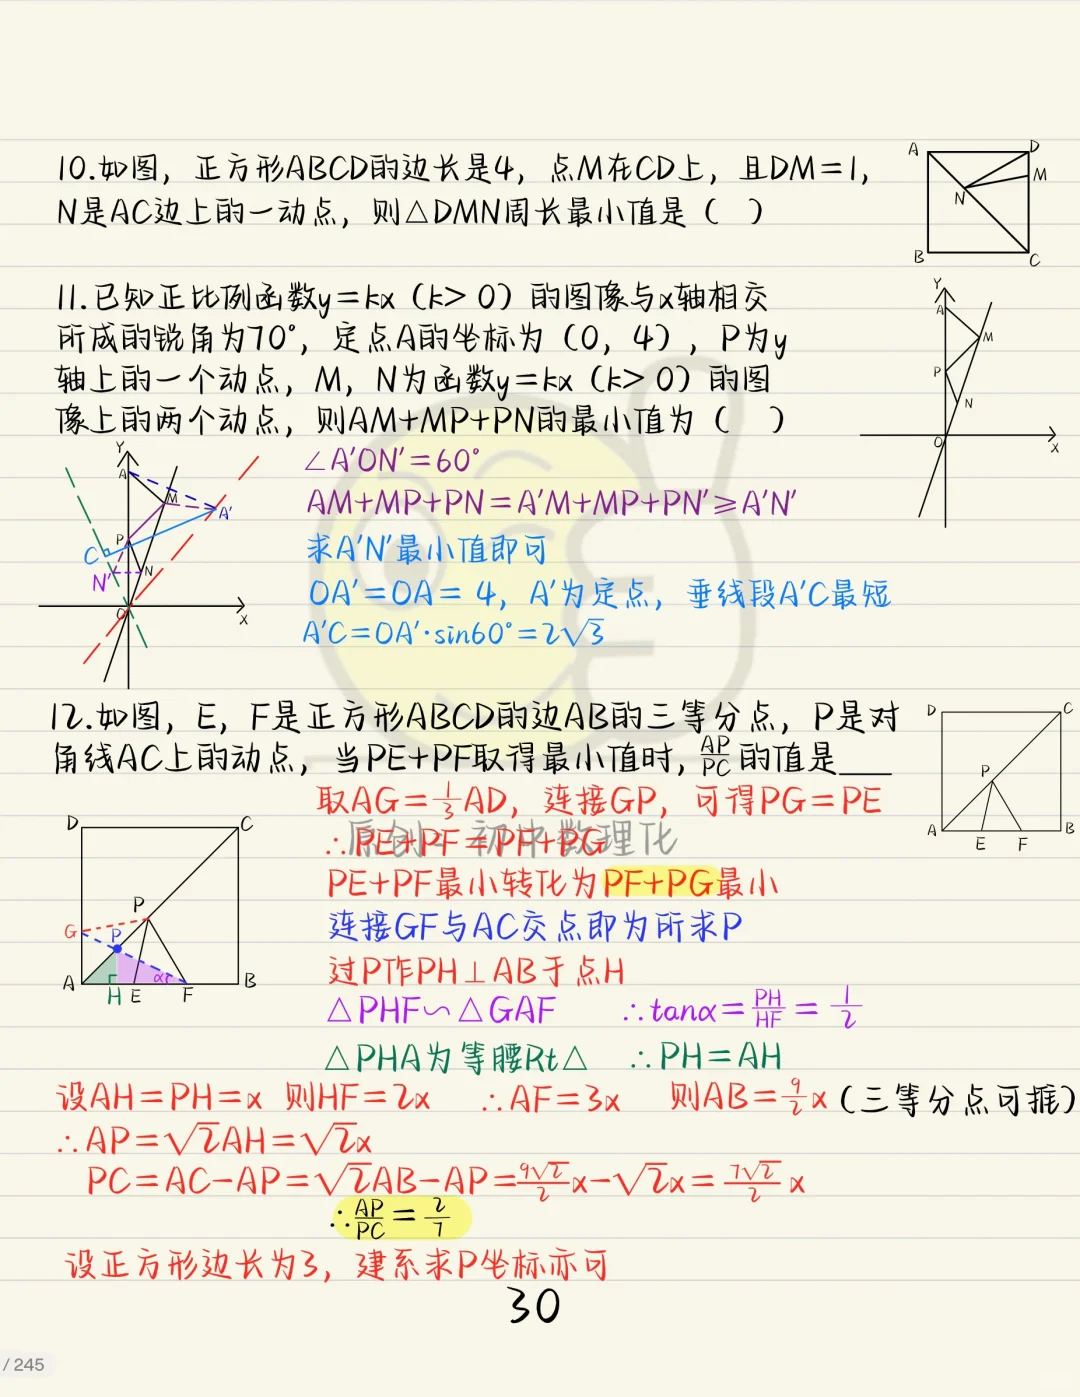 10.如图，正方形ABCD的边长是4，点M在CD上，且DM=1，
N是AC边上的一动点，则△DMN周长最小值是（ ）
A
D
M
N
B
C
11.已知正比例函数y=kx（k>0）的图像与x轴相交
所成的锐角为70°，定点A的坐标为（0，4），P为y
轴上的一个动点，M，N为函数y=kx（k>0）的图
像上的两个动点，则AM+MP+PN的最小值为（ ）
Y
A
M
P
N
O
X
Y
A
M
A'
P
C
N'
N
O
X
∠A'ON'=60°
AM+MP+PN=A'M+MP+PN'≥A'N'
求A'N'最小值即可
OA'=OA=4，A'为定点，垂线段A'C最短
A'C=OA'·sin60°=2√3
12.如图，E，F是正方形ABCD的边AB的三等分点，P是对
角线AC上的动点，当PE+PF取得最小值时，AP/PC的值是___
D
C
P
A
B
E
F
取AG=1/3AD，连接GP，可得PG=PE
∴PE+PF=PF+PG
原创：初中数理化
PE+PF最小转化为PF+PG最小
连接GF与AC交点即为所求P
过P作PH⊥AB于点H
△PHF∽△GAF ∴tanα=PH/HF=1/2
△PHA为等腰Rt△ ∴PH=AH
D
C
P
G
P
A
α
B
H
E
F
设AH=PH=x 则HF=2x ∴AF=3x 则AB=9/2x（三等分点可推）
∴AP=√2AH=√2x
PC=AC-AP=√2AB-AP=9√2/2x-√2x=7√2/2x
∴AP/PC=2/7
设正方形边长为3，建系求P坐标亦可
30
/ 245